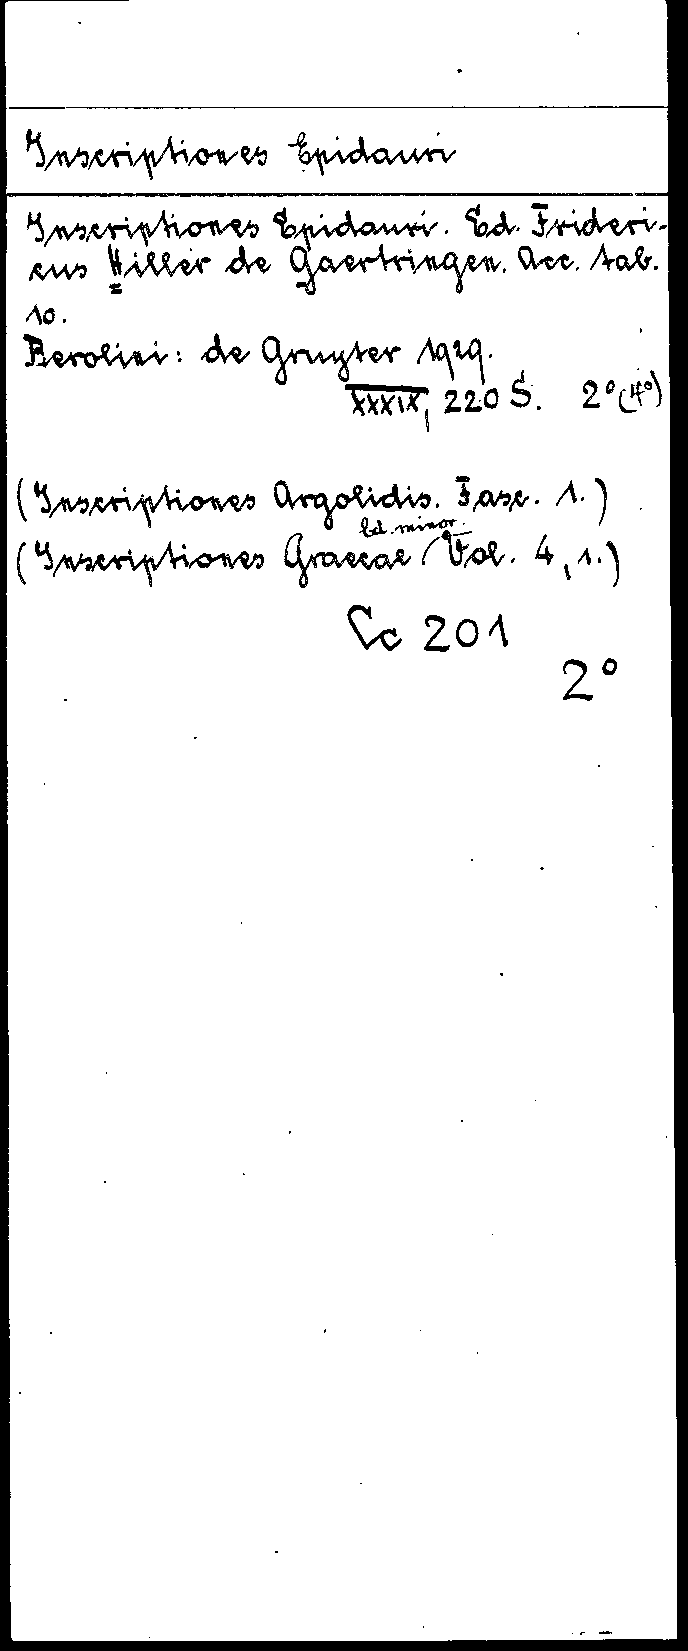 Inscriptiones Epidauri
Inscriptiones Epidauri. Ed. Frideri-
cus Hiller de Gaertringen. Acc. tab.
10.
Berolini: de Gruyter 1929.
XXXIX, 220 S. 2° (4°)
(Inscriptiones Argolidis. Fasc. 1.)
Ed. minor.
(Inscriptiones Graecae Vol. 4, 1.)
Cc 201
2°